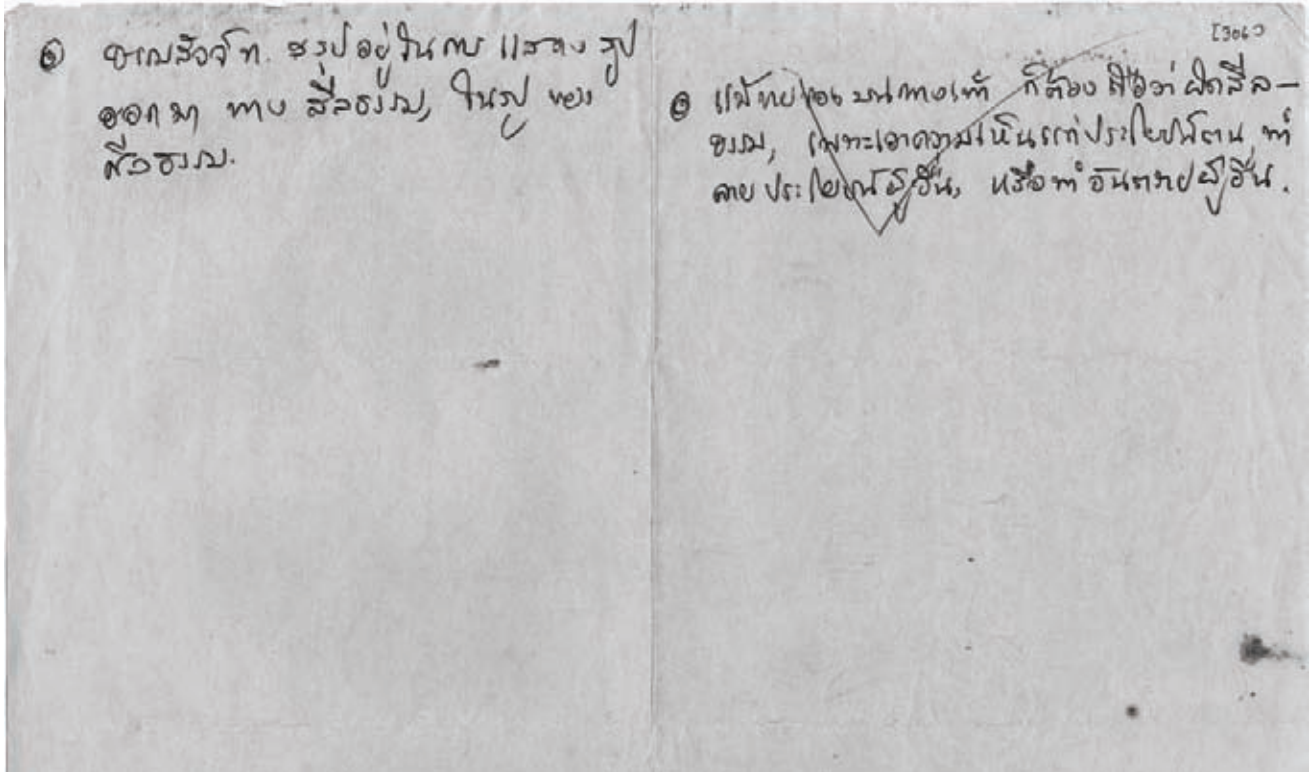 สรุปอยู่ในการ แสดง รูป
ออกมา ทาง ศีลธรรม, ในรูป ของ
ศีลธรรม.
[306]
แม้ทาย บนทางเท้า ก็ต้องถือว่าผิดศีล-
ธรรม, เพราะเอาความเห็นแก่ประโยชน์ตน, ทำ
ลายประโยชน์ผู้อื่น, หรือทำอันตรายผู้อื่น.